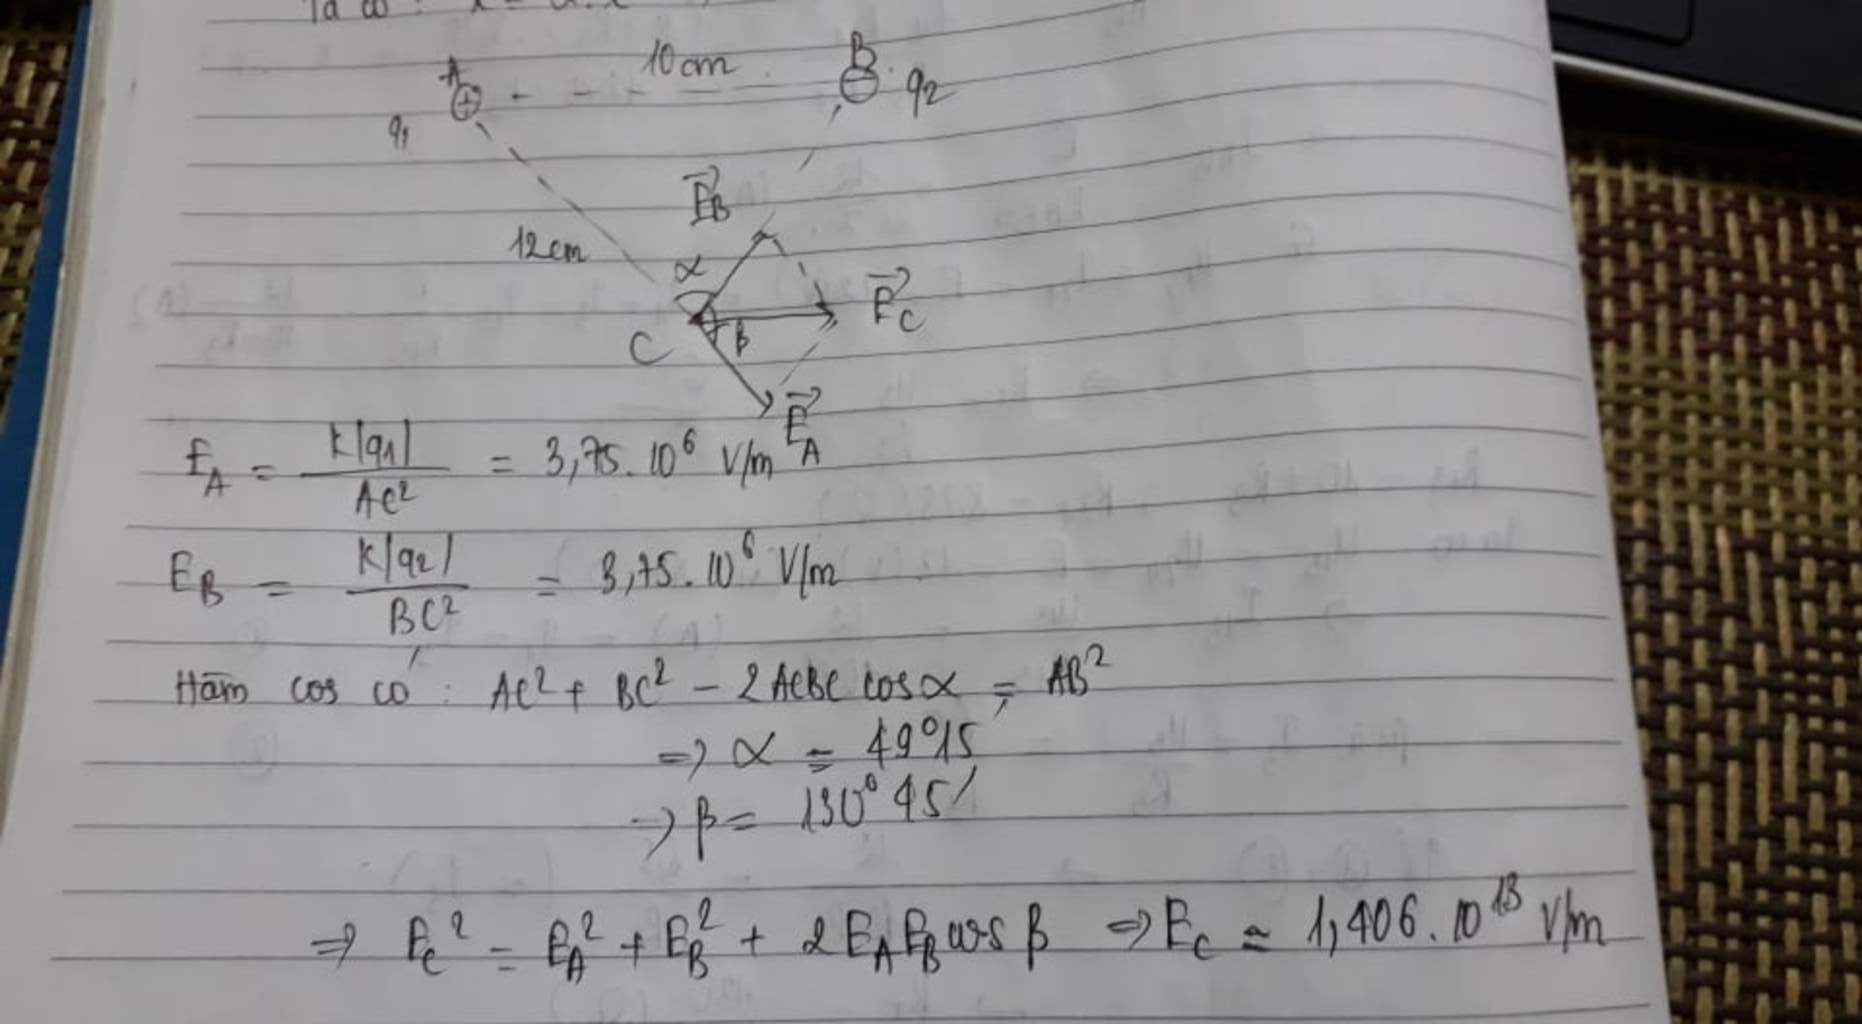 Ta có :
A 10cm B
q₁ q₂
E⃗_B
12cm α
C β E⃗_C
E⃗_A
E_A = K|q₁| / AC² = 3,75.10⁶ V/m
E_B = K|q₂| / BC² = 3,75.10⁶ V/m
Hàm cos có : AC² + BC² - 2ACBC cosα = AB²
=> α ≈ 49°15'
=> β = 130°45'
=> E_C² = E_A² + E_B² + 2E_A E_B cos β => E_C ≈ 1,406.10¹³ V/m